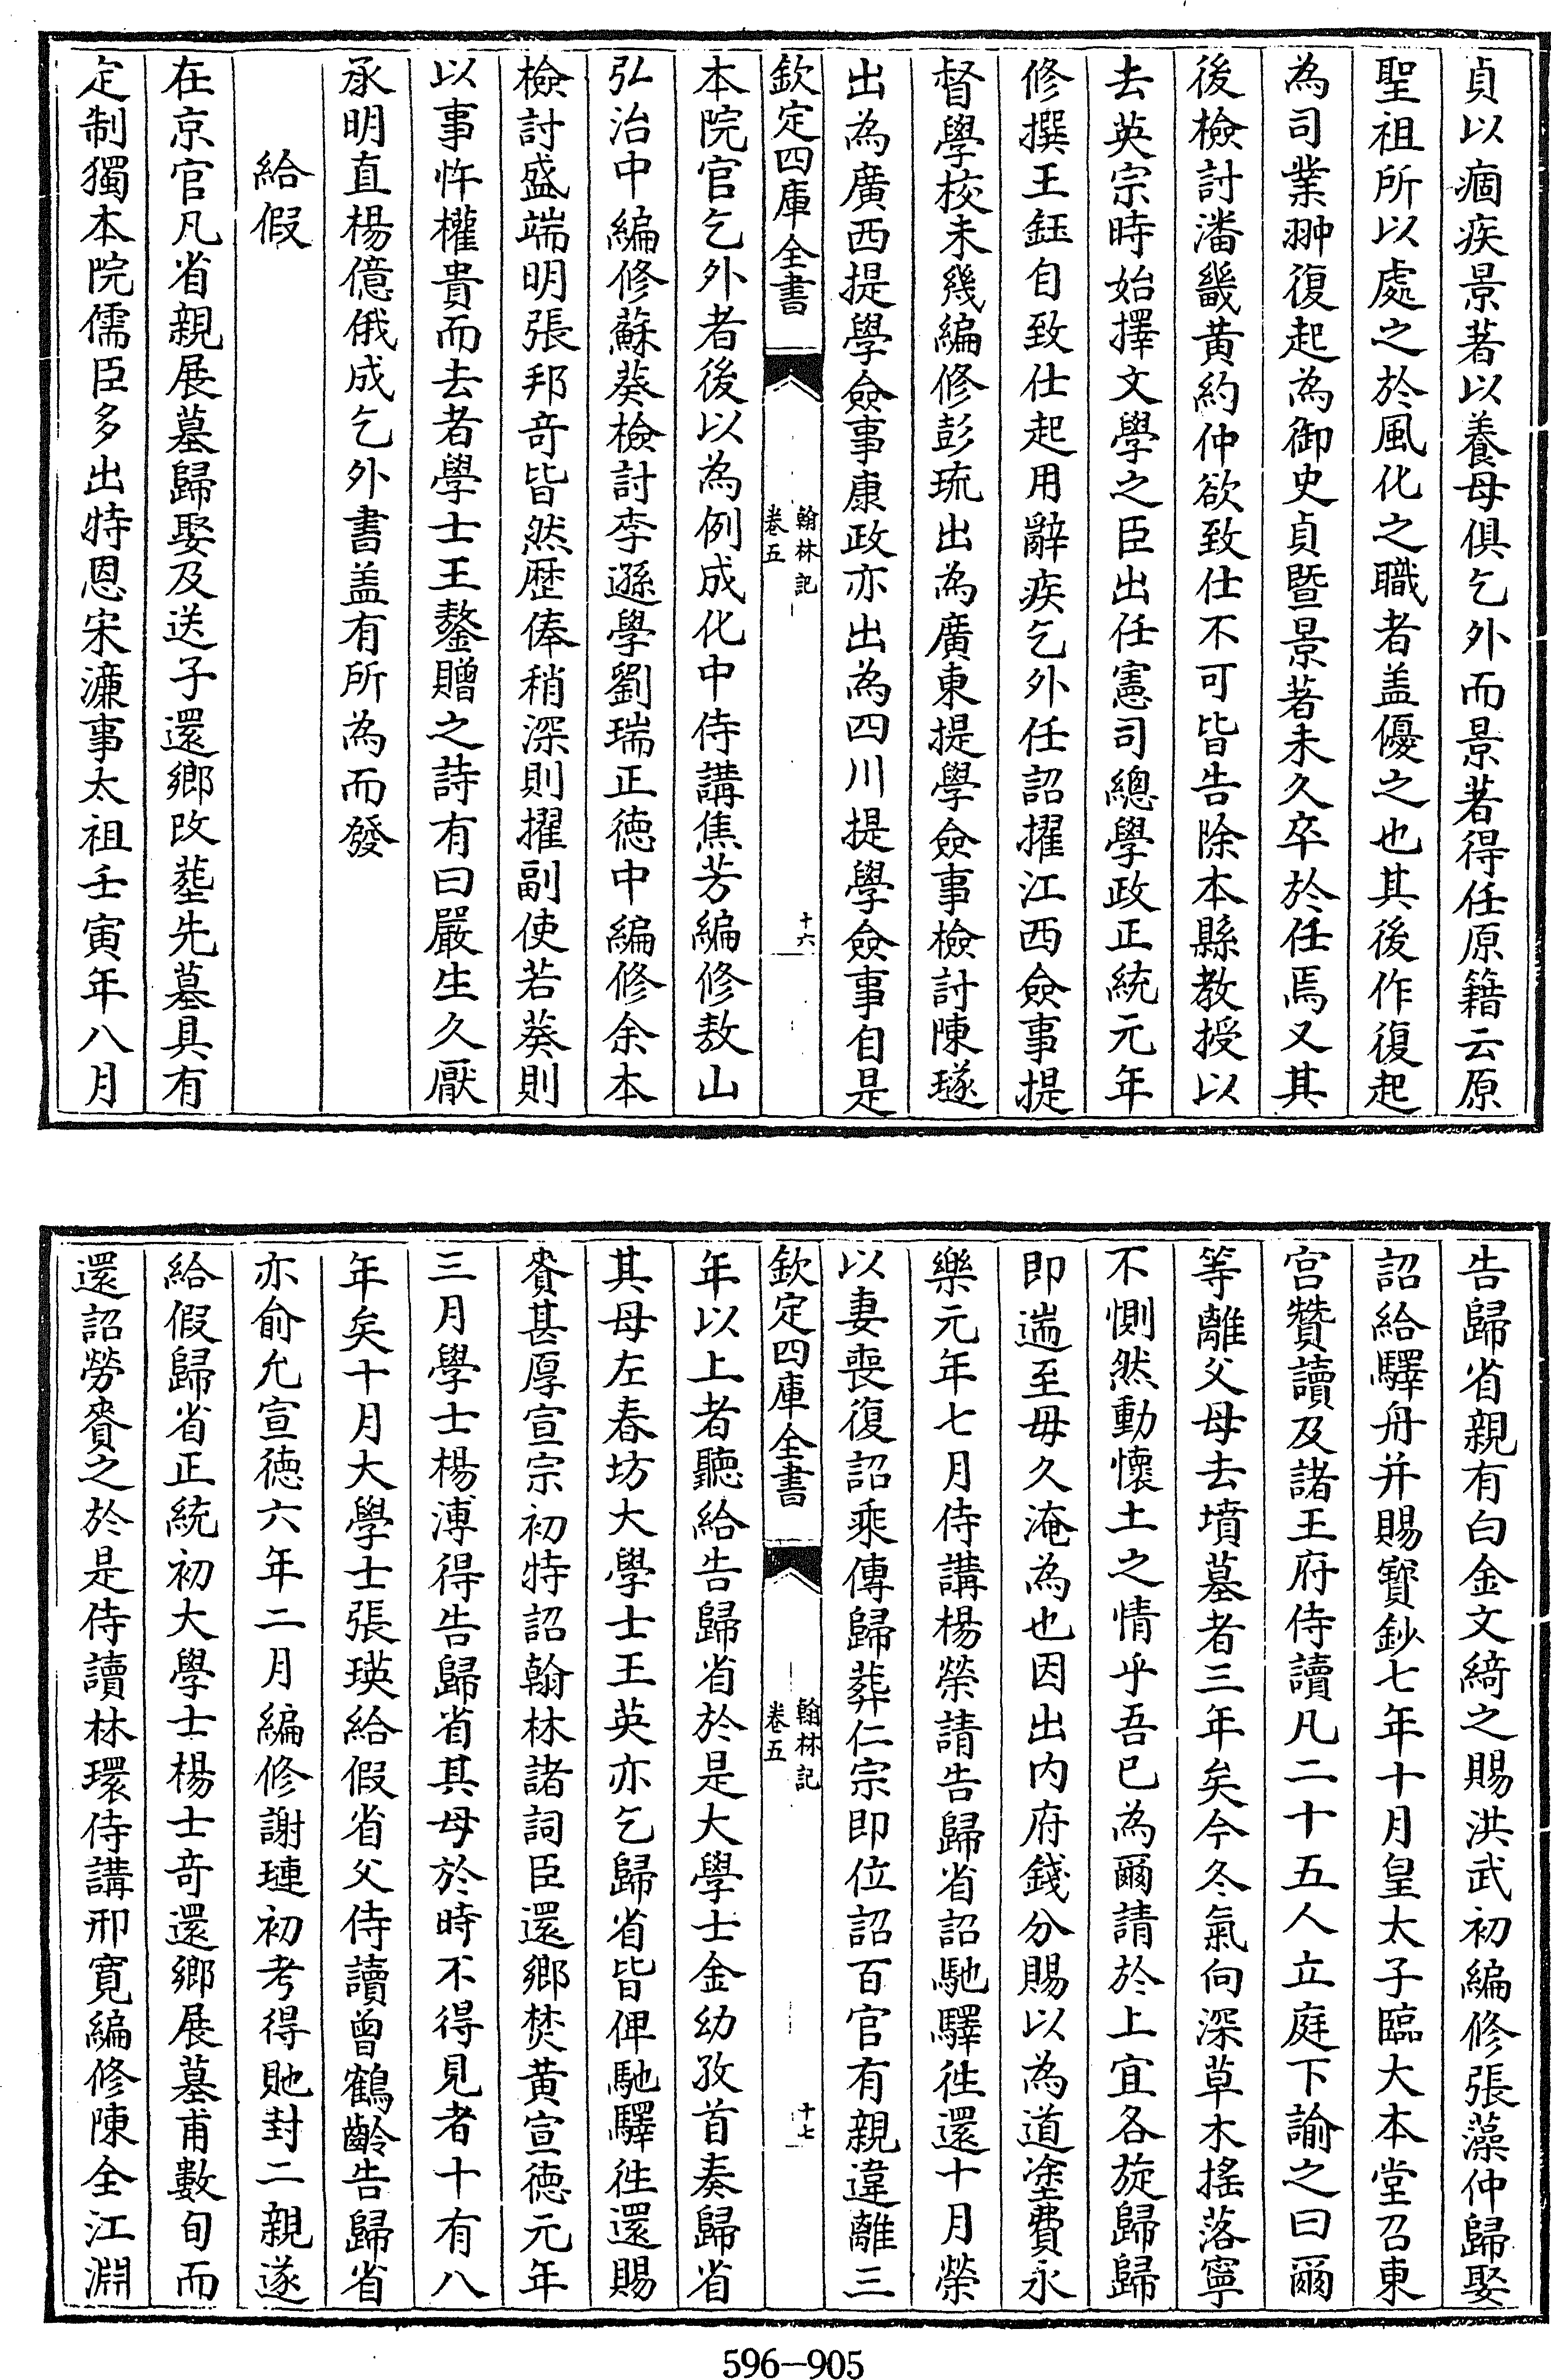 貞以痼疾景著以養母俱乞外而景著得任原籍云原
聖祖所以處之於風化之職者盖優之也其後作復起
為司業翀復起為御史貞暨景著未久卒於任焉又其
後檢討潘畿黄約仲欲致仕不可皆告除本縣教授以
去英宗時始擇文學之臣出任憲司總學政正統元年
修撰王鈺自致仕起用辭疾乞外任詔擢江西僉事提
督學校未幾編修彭琉出為廣東提學僉事檢討陳璲
出為廣西提學僉事康政亦出為四川提學僉事自是
欽定四庫全書
翰林記
卷五
十六
本院官乞外者後以為例成化中侍講焦芳編修敖山
弘治中編修蘇葵檢討李遜學劉瑞正德中編修余本
檢討盛端明張邦奇皆然歷俸稍深則擢副使若葵則
以事忤權貴而去者學士王鏊贈之詩有曰嚴生久厭
承明直楊億俄成乞外書盖有所為而發
給假
在京官凡省親展墓歸娶及送子還鄉改塟先墓具有
定制獨本院儒臣多出特恩宋濂事太祖壬寅年八月
告歸省親有白金文綺之賜洪武初編修張藻仲歸娶
詔給驛舟并賜寶鈔七年十月皇太子臨大本堂召東
宮贊讀及諸王府侍讀凡二十五人立庭下諭之曰爾
等離父母去墳墓者三年矣今冬氣向深草木揺落寧
不惻然動懷土之情乎吾已為爾請於上宜各旋歸歸
即遄至毋久淹為也因出内府錢分賜以為道塗費永
樂元年七月侍講楊榮請告歸省詔馳驛徃還十月榮
以妻喪復詔乘傳歸葬仁宗即位詔百官有親違離三
欽定四庫全書
翰林記
卷五
十七
年以上者聽給告歸省於是大學士金幼孜首奏歸省
其母左春坊大學士王英亦乞歸省皆俾馳驛徃還賜
賚甚厚宣宗初特詔翰林諸詞臣還鄉焚黄宣德元年
三月學士楊溥得告歸省其母於時不得見者十有八
年矣十月大學士張瑛給假省父侍讀曾鶴齡告歸省
亦俞允宣德六年二月編修謝璉初考得貤封二親遂
給假歸省正統初大學士楊士奇還鄉展墓甫數旬而
還詔勞賚之於是侍讀林環侍講邢寛編修陳全江淵
596-905